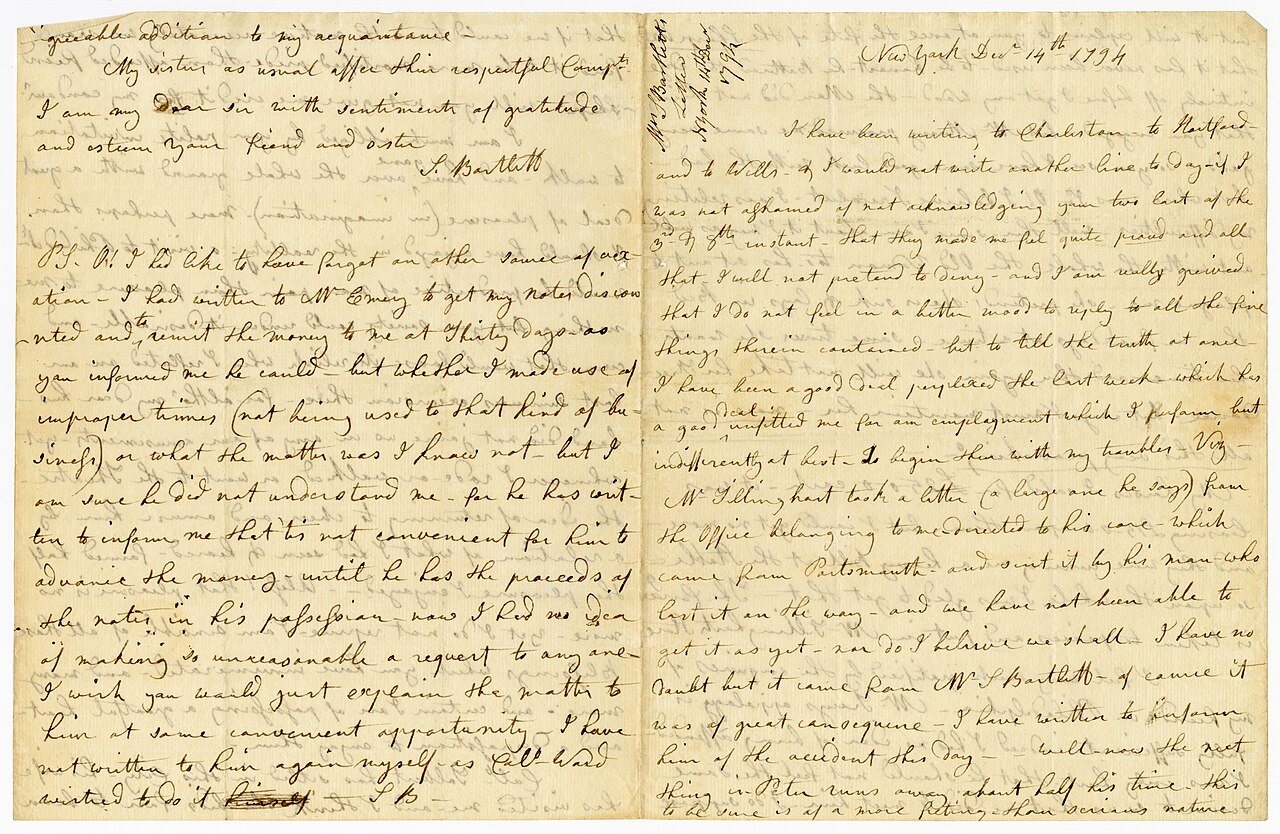 greeable addition to my acquaintance –
My sisters as usual offer their respectful Compts
I am my Dear sir with sentiments of gratitude
and esteem your friend and sister
S. Bartlett
P.S. O! I had like to have forgot an other source of vex-
ation – I had written to Mr Emery to get my notes discou
nted and to remit the money to me at Thirty Days – as
you informed me he could – but whether I made use of
improper times (not being used to that kind of bu-
siness) or what the matter was I know not – but I
am sure he did not understand me – for he has writ-
ten to inform me that 'tis not convenient for him to
advance the money – until he has the proceeds of
the notes in his possession – now I had no idea
of making so unreasonable a request to any one –
I wish you would just explain the matter to
him at some convenient opportunity – I have
not written to him again myself – as Coll. Ward
wished to do it himself – S B –
Mrs S Bartletts
Letter
N York 14 Decr
1794
New York Decr 14th 1794
I have been writing to Charleston to Hartford –
and to Wills – & I would not write another line to day – if I
was not ashamed of not acknowledging your two last of the
3rd & 8th instant – that they made me feel quite proud and all
that – I will not pretend to deny – and I am really greived –
that I do not feel in a better mood to reply to all the fine
things therein contained – but to tell the truth at once –
I have been a good deal perplexed the last week – which has
a good deal unfitted me for an employment which I perform but
indifferently at best – To begin then with my troubles – Viz –
Mr Tillinghast took a letter (a large one he says) from
the Office belonging to me – directed to his care – which
came from Portsmouth – and sent it by his man – who
lost it on the way – and we have not been able to
get it as yet – nor do I beleive we shall – I have no
doubt but it came from Mr S Bartlett – of course it
was of great consequence – I have written to inform
him of the accident this day – – well – now the next
thing is – Peter runs away about half his time – this
to be sure is of a more fleeting – than serious nature